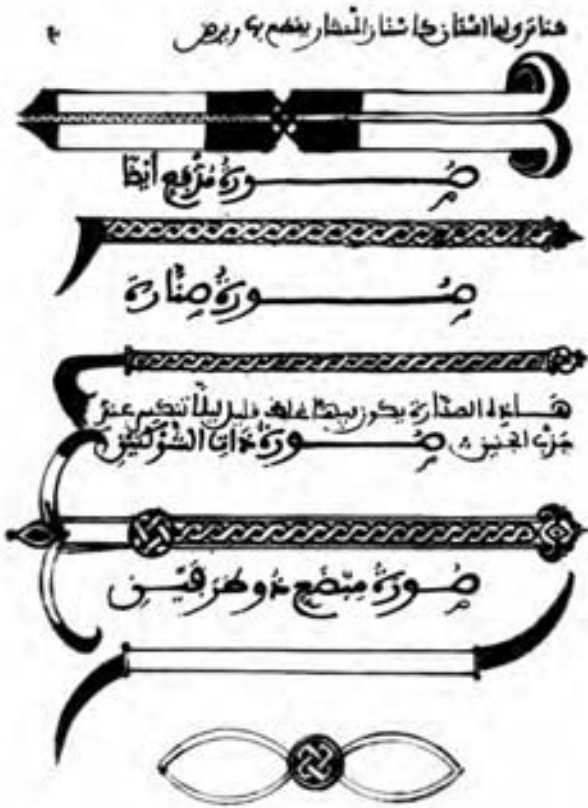 ترى لها اسنان كاسنان المنشار يقطع بها ويرض
صورة مدفع أيضا
صورة صنارة
هذه الصنارة يكون فيها غلظ قليل ليلا تنكسر عند
جذب الجنين صورة ذات الشوكتين
صورة مبضع ذو طرفين